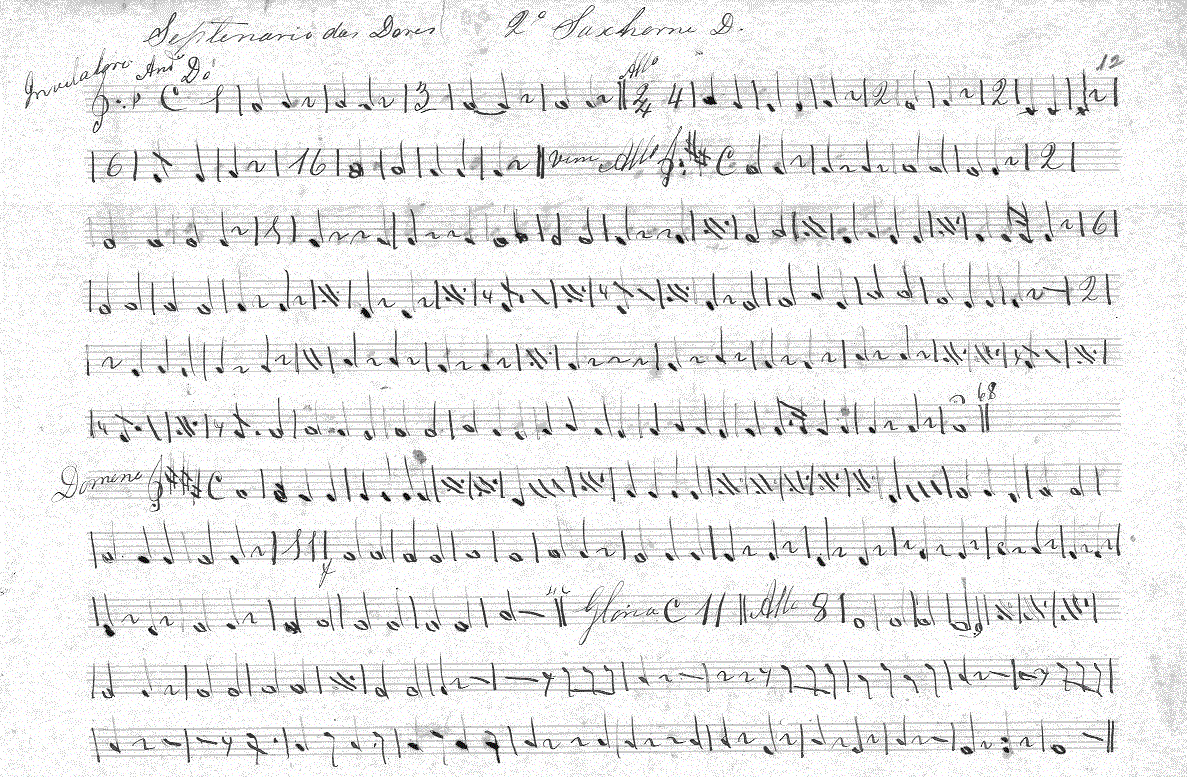 Septenario das Dores 2º Saxhorne D.
Invitatorio Andº Dó Allº 12
C 1 3 2/4 4 2 2
6 16 Veni Allº C 2
5 6
2
68
Domine C
Gloria C 11 Allº 8